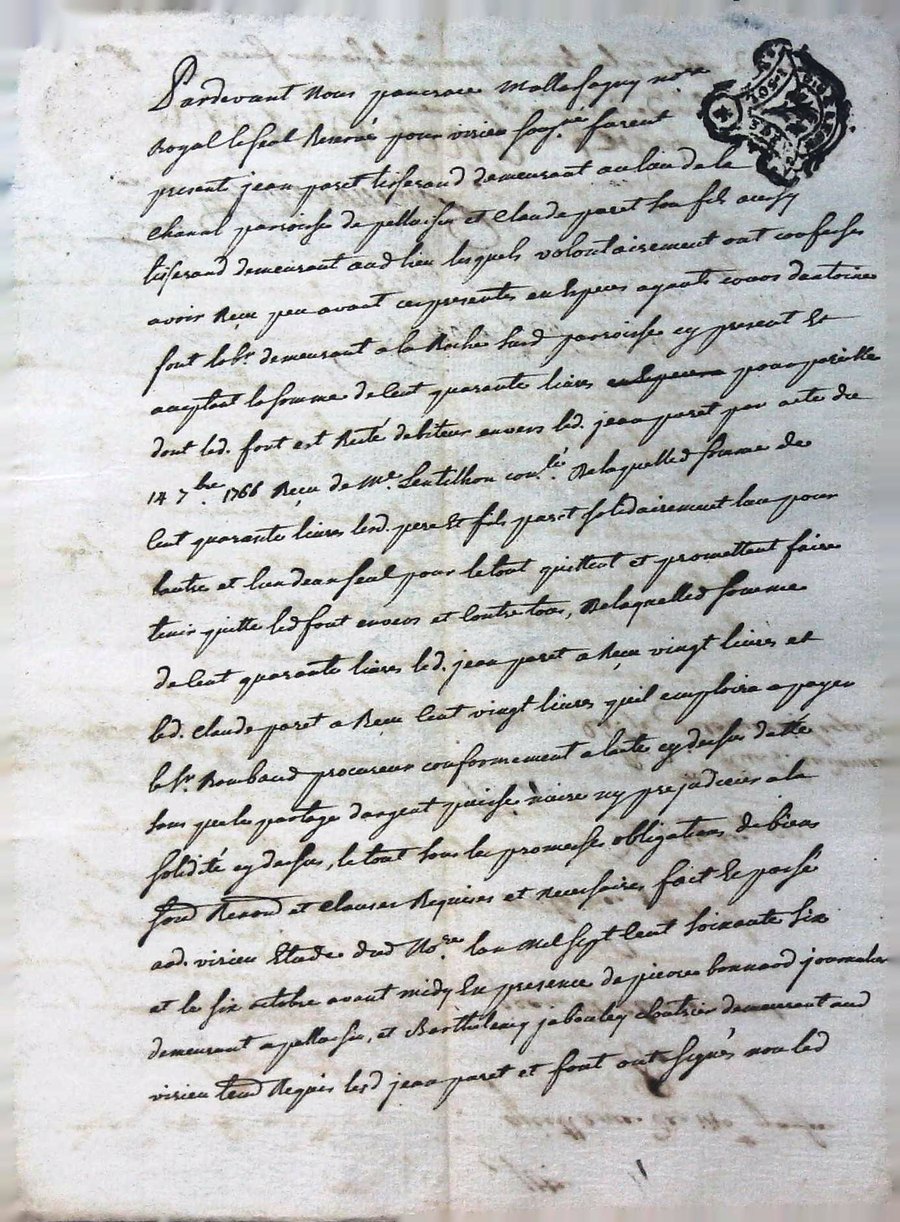 Pardevant Nous pancrace Mallassagny no.re
Royal le seal Reservé pour virieu sous.né furent
present jean paret tisserand demeurant au lieu de la
chanal parroisse de pellussin et Claude paret son fils aussy
tisserand demeurant aud lieu lesquels volontairement ont confessés
avoir Reçu peu avant ces presentes en Especes ayants cours dantoine
font lab.r demeurant a la Roche Susd parroisse cy present Et
acceptant la somme de Cent quarante livres pour pareille
dont led. font est Resté debiteur envers led. jean paret par acte du
14 7bre. 1766 Reçu de Me. Lentilhon De laquelle d somme de
Cent quarante livres lesd. pere Et fils paret solidairement lun pour
lautre et lun deux seul pour le tout quittent et promettent faire
tenir quitte led font envers et Contre tous, De laquelle d somme
de Cent quarante livres led. jean paret a Reçu vingt livres et
led. Claude paret a Reçu Cent vingt livres quil emploira a payer
le Sr. Roubaud procureur conformement a lacte cy dessus datté
sans que le partage dargent puisse nuire ny prejudicier a la
solidité cy dessus, le tout sous les promesses obligations de biens
soud Renond et Clauses Requises et necessaires, fait Et passé
aud. virieu Etude dud No.re lan Mil sept Cent soixante six
et le six octobre avant midy En presence de pierre bonnard journalier
demeurant a pellussin, et Barthelemy jabouley demeurant aud
virieu Requis lesd jean paret et font ont signés non led